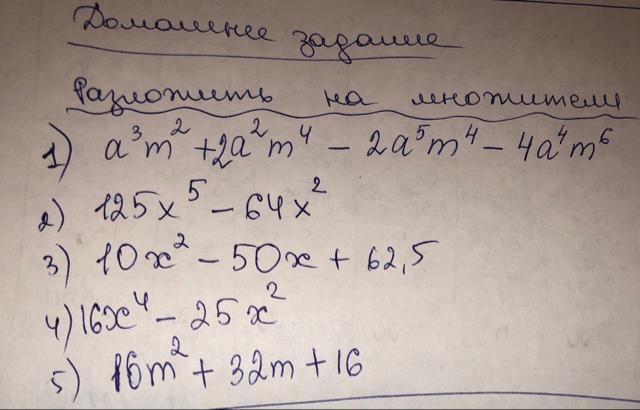 Домашнее задание
Разложить на множители
1) a³m² + 2a²m⁴ − 2a⁵m⁴ − 4a⁴m⁶
2) 125x⁵ − 64x²
3) 10x² − 50x + 62,5
4) 16x⁴ − 25x²
5) 16m² + 32m + 16